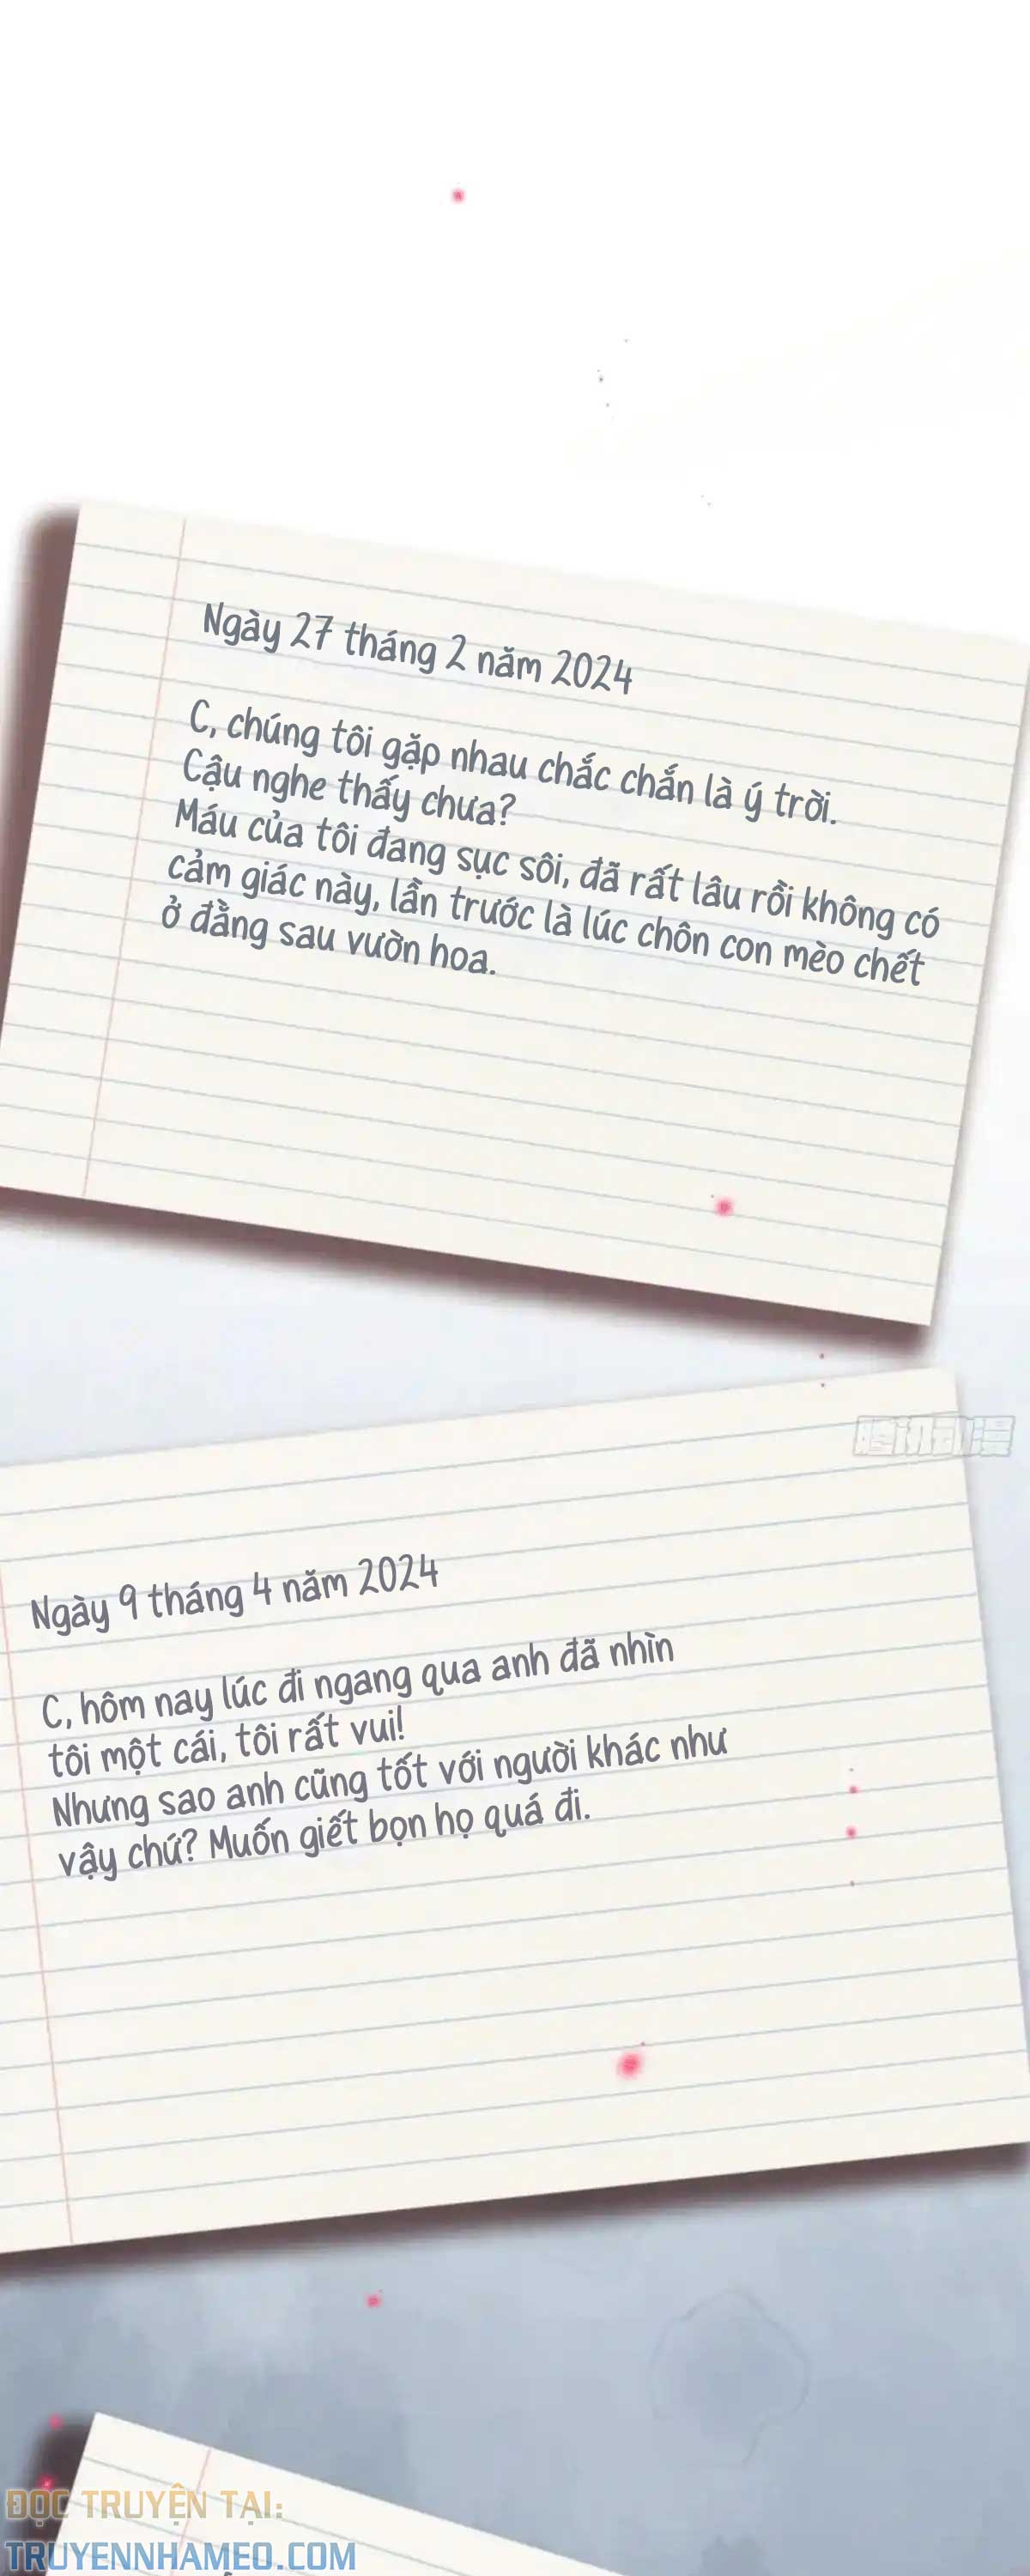 Ngày 27 tháng 2 năm 2024
C, chúng tôi gặp nhau chắc chắn là ý trời.
Cậu nghe thấy chưa?
Máu của tôi đang sục sôi, đã rất lâu rồi không có
cảm giác này, lần trước là lúc chôn con mèo chết
ở đằng sau vườn hoa.
腾讯动漫
Ngày 9 tháng 4 năm 2024
C, hôm nay lúc đi ngang qua anh đã nhìn
tôi một cái, tôi rất vui!
Nhưng sao anh cũng tốt với người khác như
vậy chứ? Muốn giết bọn họ quá đi.
ĐỌC TRUYỆN TẠI:
TRUYENNHAMEO.COM